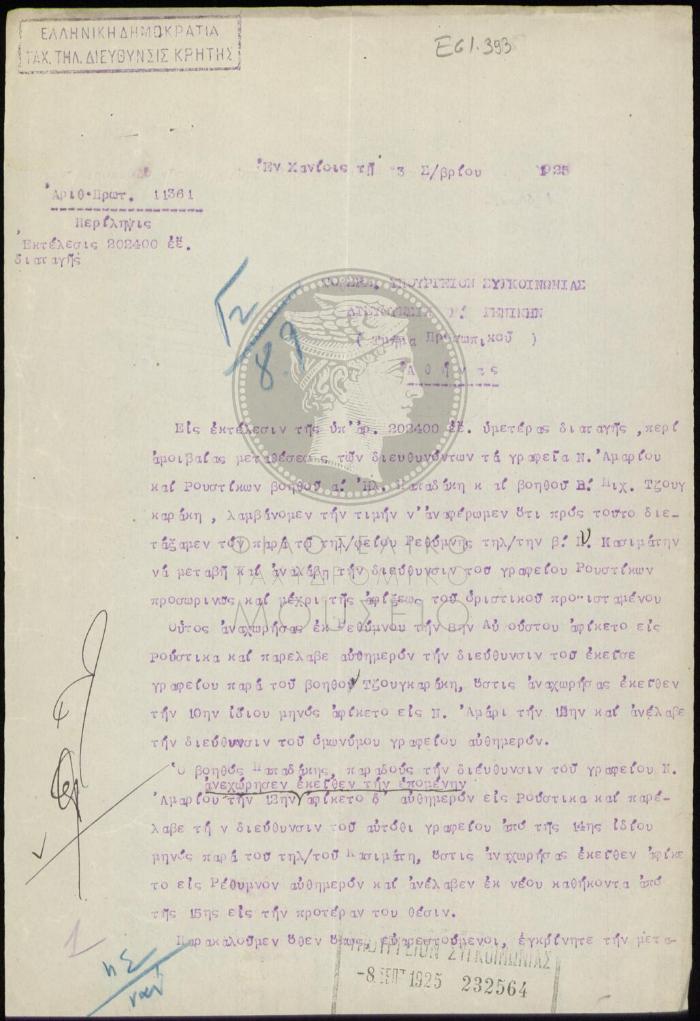 ΕΛΛΗΝΙΚΗ ΔΗΜΟΚΡΑΤΙΑ
ΤΑΧ. ΤΗΛ. ΔΙΕΥΘΥΝΣΙΣ ΚΡΗΤΗΣ
ΕG1.393
Ἐν Χανίοις τῇ 3 Σ/βρίου 1925
Ἀριθ.Πρωτ. 11361
Περίληψις
Ἐκτέλεσις 202400 ἐ.ἔ.
διαταγῆς
ΣΥΓΚΟΙΝΩΝΙΑΣ
( Τμῆμα Προσωπικοῦ )
Ἀθήνας
Γ2
8.9
Εἰς ἐκτέλεσιν τῆς ὑπ' ἀρ. 202400 ἐ.ἔ. ὑμετέρας διαταγῆς ,περί
ἀμοιβαίας μεταθέσεως τῶν διευθυνόντων τά γραφεῖα Ν. Ἀμαρίου
καί Ρουστίκων βοηθοῦ α. Ἠλ. Παπαδάκη κ αί βοηθοῦ Β. Μιχ. Τζουγ
καράκη , λαμβάνομεν τήν τιμήν ν' ἀναφέρωμεν ὅτι πρός τοῦτο διε-
τάξαμεν τόν παρά τῷ τηλ/φείῳ Ρεθύμνης τηλ/την β. Ν. Κασιμάτην
νά μεταβῇ καί ἀναλάβῃ τήν διεύθυνσιν τοῦ γραφείου Ρουστίκων
προσωρινῶς καί μέχρι τῆς ἀφίξεως τοῦ ὁριστικοῦ προισταμένου
Οὗτος ἀναχωρήσας ἐκ Ρεθύμνου τήν 8ην Αὐ ούστου ἀφίκετο εἰς
Ρούστικα καί παρέλαβε αὐθημερόν τήν διεύθυνσιν τοῦ ἐκεῖσε
γραφείου παρά τοῦ βοηθοῦ Τζουγκαράκη, ὅστις ἀναχωρήσας ἐκεῖθεν
τήν 10ην ἰδίου μηνός ἀφίκετο εἰς Ν. Ἀμάρι τήν 12ην καί ἀνέλαβε
τήν διεύθυνσιν τοῦ ὁμωνύμου γραφείου αὐθημερόν.
Ὁ βοηθός Παπαδάκης, παραδούς τήν διεύθυνσιν τοῦ γραφείου Ν.
ἀνεχώρησεν ἐκεῖθεν τήν ἑπομένην
Ἀμαρίου τήν 12ην ἀφίκετο δ' αὐθημερόν εἰς Ρούστικα καί παρέ-
λαβε τή ν διεύθυνσιν τοῦ αὐτόθι γραφείου ἀπό τῆς 14ης ἰδίου
μηνός παρά τοῦ τηλ/τοῦ Κασιμάτη, ὅστις ἀναχωρήσας ἐκεῖθεν ἀφίκε
το εἰς Ρέθυμνον αὐθημερόν καί ἀνέλαβεν ἐκ νέου καθήκοντα ἀπό
τῆς 15ης εἰς τήν προτέραν του θέσιν.
Παρακαλοῦμεν ὅθεν ὅπως, εὐαρεστούμενοι, ἐγκρίνητε τήν μετα-
ΥΠΟΥΡΓΕΙΟΝ ΣΥΓΚΟΙΝΩΝΙΑΣ
-8 ΣΕΠΤ 1925 232564
1